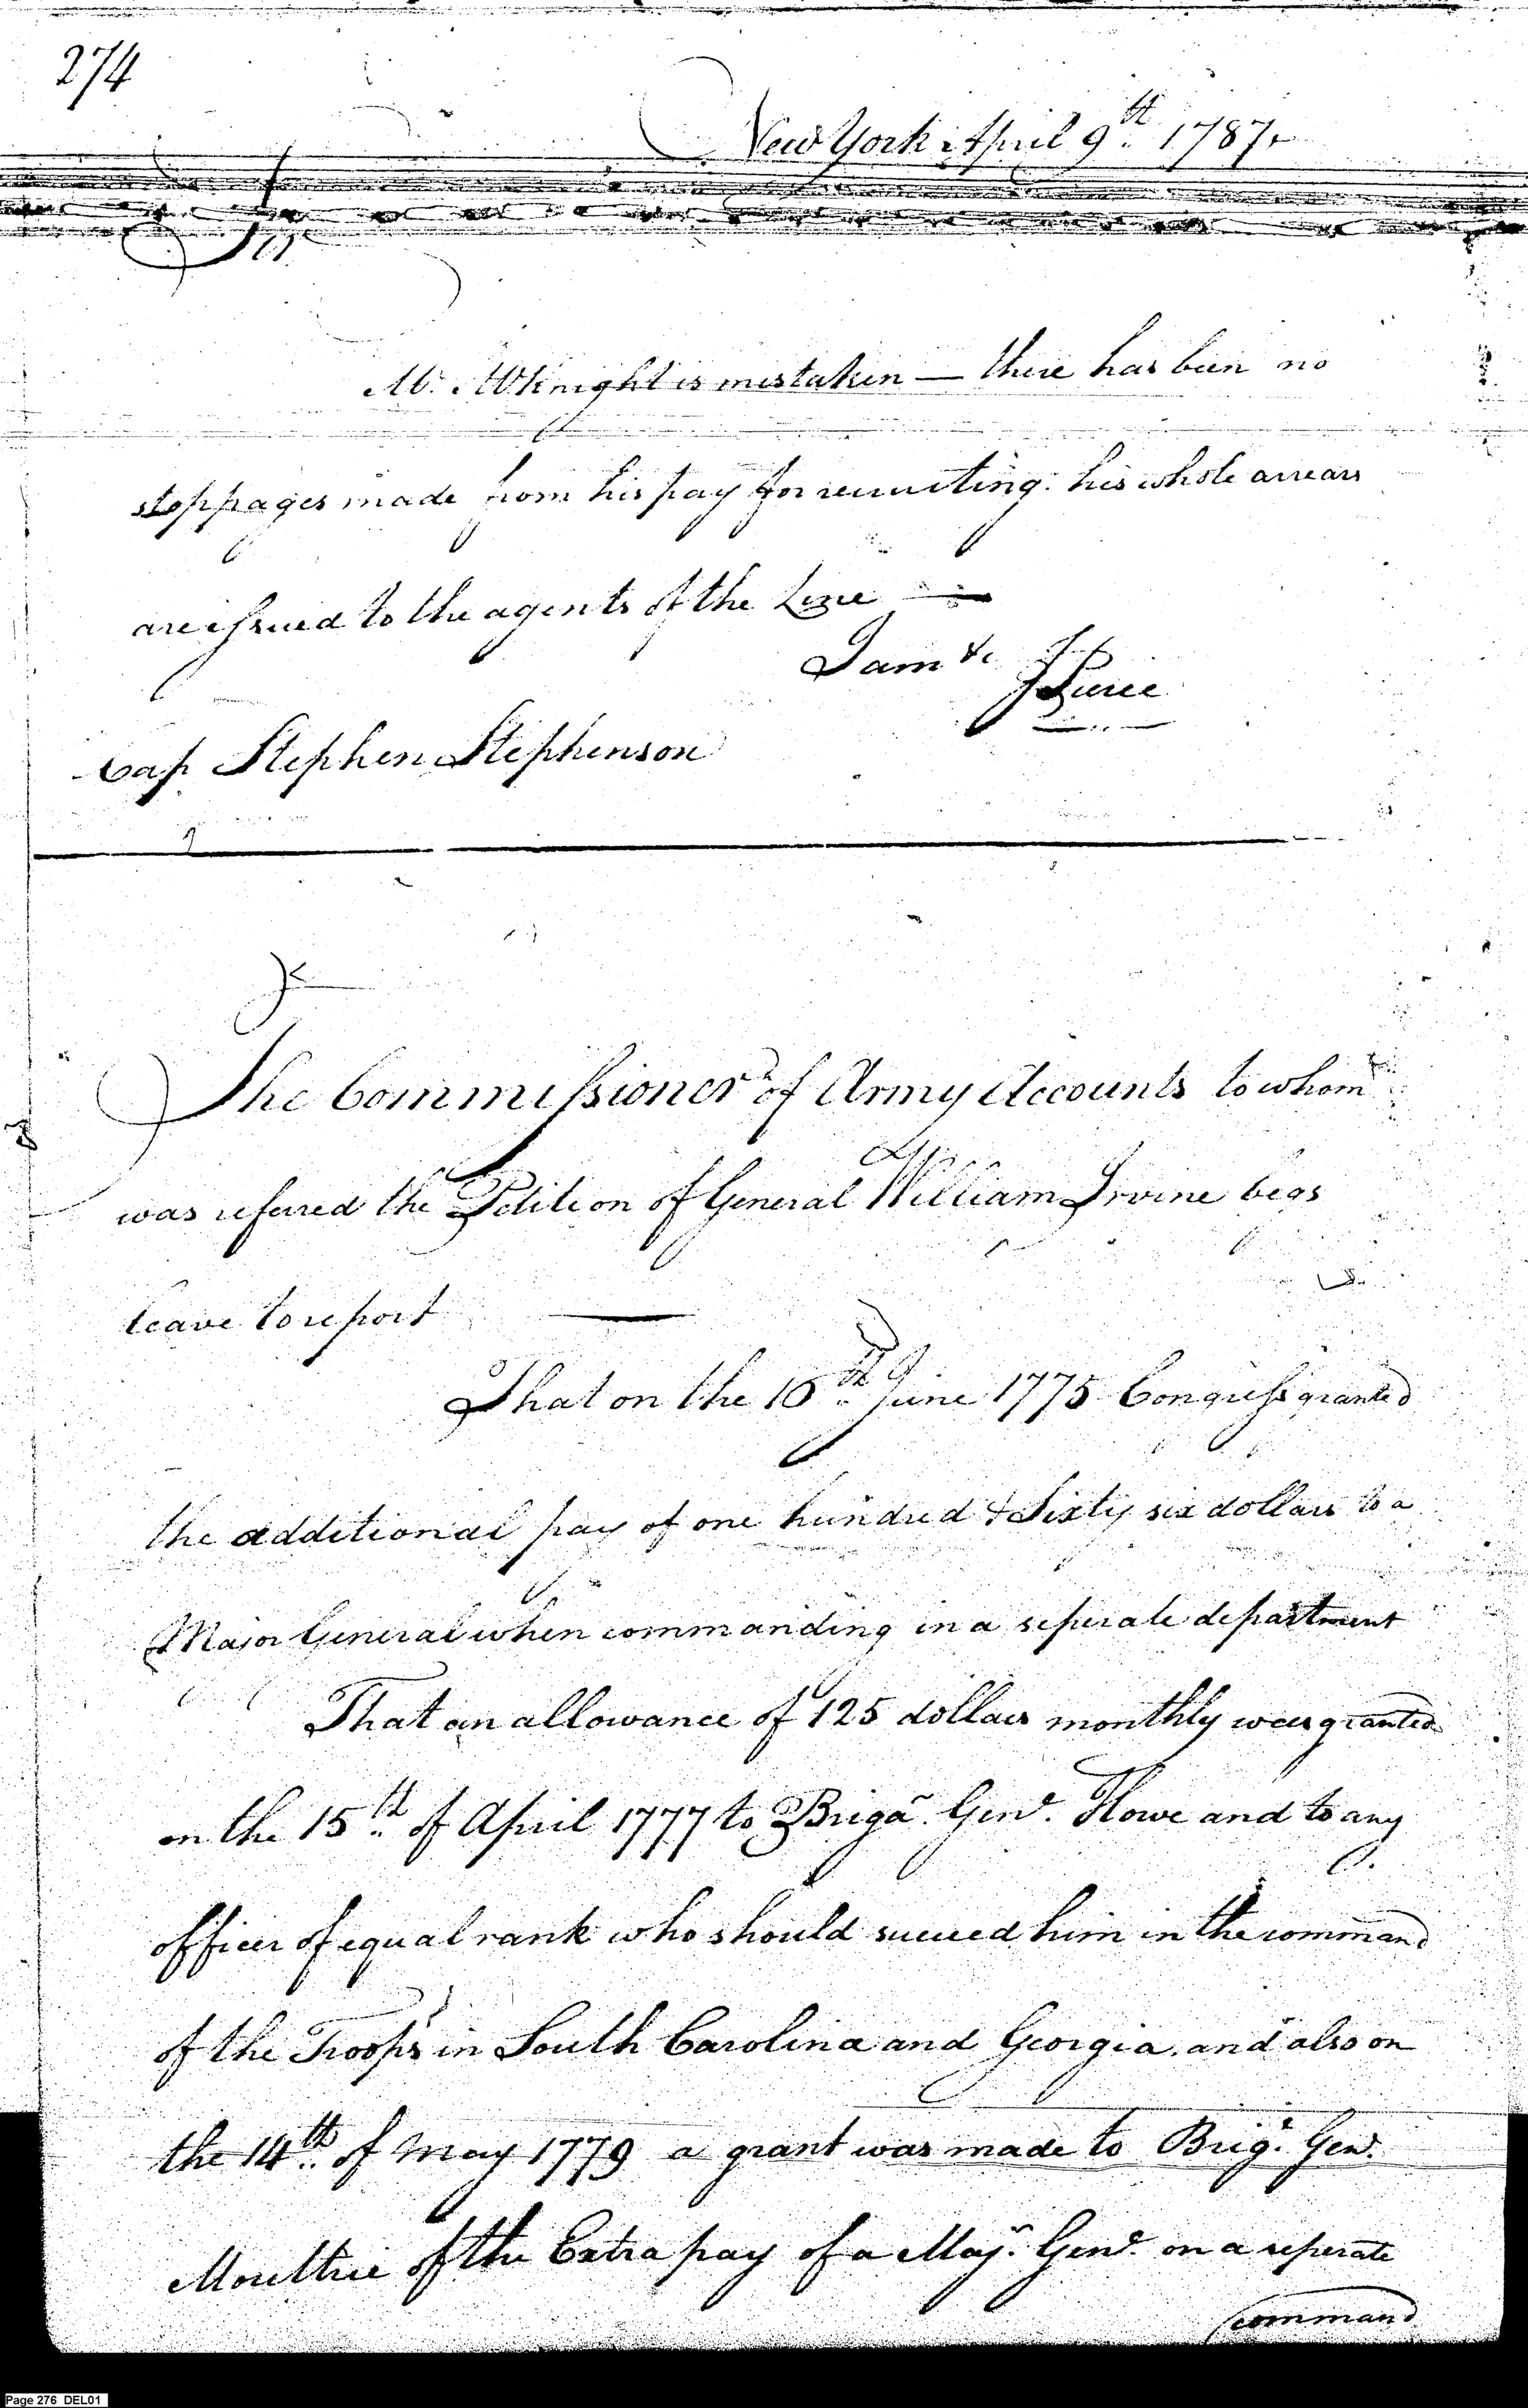 274
New York April 9th. 1787.
Sir
Mr. McKnight is mistaken — there has been no
stoppages made from his pay for recruiting: his whole arrears
are issued to the agents of the Line —
I am &c
J Pierce
Cap Stephen Stephenson
The Commissioner of Army Accounts to whom
was referred the Petition of General William Irvine begs
leave to report —
That on the 16th. June 1775 Congress granted
the additional pay of one hundred & Sixty six dollars to a
Major General when commanding in a seperate department
That an allowance of 125 dollars monthly was granted
on the 15th. of April 1777 to Briga. Genl. Howe and to any
officer of equal rank who should succeed him in the command
of the Troops in South Carolina and Georgia. and also on
the 14th. of May 1779 a grant was made to Brigr. Genl.
Moultrie of the Extra pay of a Majr. Genl. on a seperate
command
Page 276 DEL01